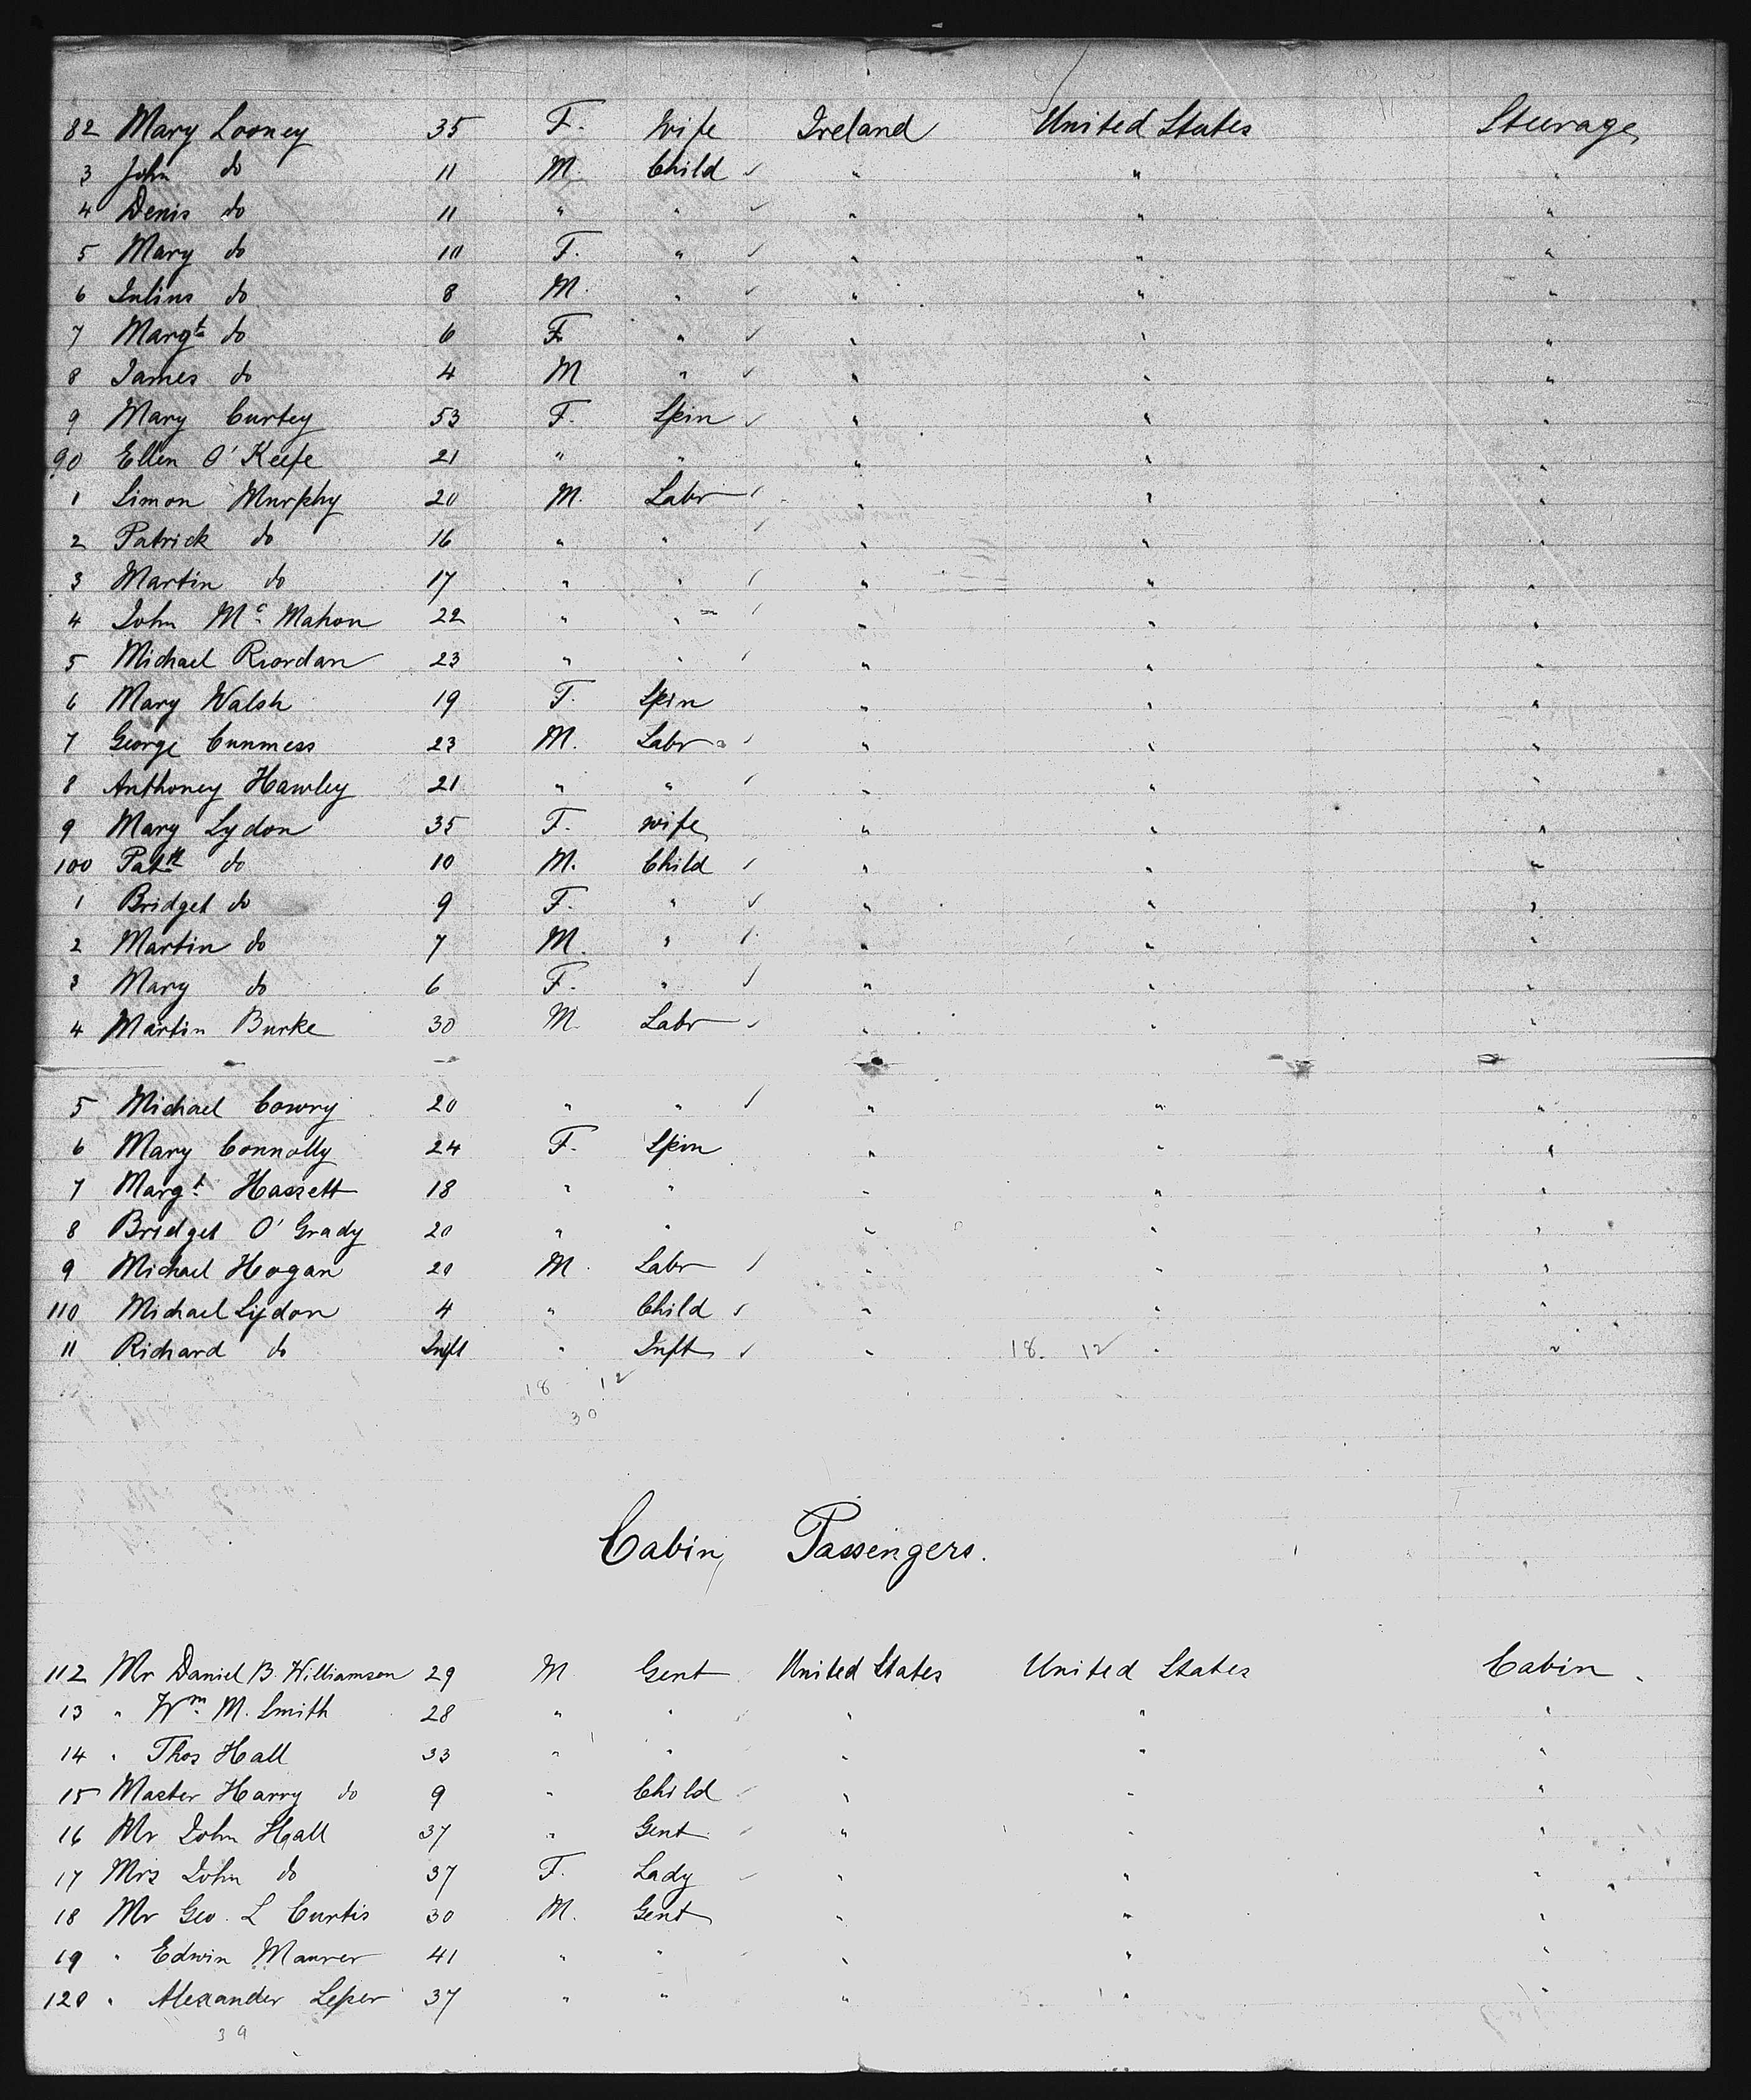 82 Mary Looney 35 F. Wife Ireland United States Steerage
3 John do 11 M. Child ✓ " " "
4 Denis do 11 " " ✓ " " "
5 Mary do 10 F. " ✓ " " "
6 Julius do 8 M. " ✓ " " "
7 Margt do 6 F " ✓ " " "
8 James do 4 M " ✓ " " "
9 Mary Curtey 53 F. Spin ✓ " " "
90 Ellen O'Keefe 21 " " " " "
1 Simon Murphy 20 M. Labr ✓ " " "
2 Patrick do 16 " " ✓ " " "
3 Martin do 17 " " ✓ " " "
4 John Mc Mahon 22 " " ✓ " " "
5 Michael Riordan 23 " " ✓ " " "
6 Mary Walsh 19 F. Spin " " "
7 George 23 M. Labr ✓ " " "
8 Anthoney Hawley 21 " " ✓ " " "
9 Mary Lydon 35 F. wife " " "
100 Patk do 10 M. Child ✓ " " "
1 Bridget do 9 F. " ✓ " " "
2 Martin do 7 M. " ✓ " " "
3 Mary do 6 F. " ✓ " " "
4 Martin Burke 30 M. Labr ✓ " " "
5 Michael Cowry 20 " " ✓ " " "
6 Mary Connolly 24 F. Spin " " "
7 Margt Hassett 18 " " " " "
8 Bridget O'Grady 20 " " " " "
9 Michael Hogan 20 M. Labr ✓ " " "
110 Michael Lydon 4 " Child ✓ " " "
11 Richard do Inft " Inft ✓ " 18. 12 " "
18 12
30
Cabin Passengers.
112 Mr Daniel B. Williamson 29 M Gent United States United States Cabin
13 " Wm M. Smith 28 " " " " "
14 " Thos Hall 33 " " " " "
15 Master Harry do 9 " Child " " "
16 Mr John Hall 37 " Gent " " "
17 Mrs John do 37 F. Lady " " "
18 Mr Geo. L Curtis 30 M. Gent " " "
19 " Edwin Maurer 41 " " " " "
120 " Alexander Leper 37 " " " " "
39